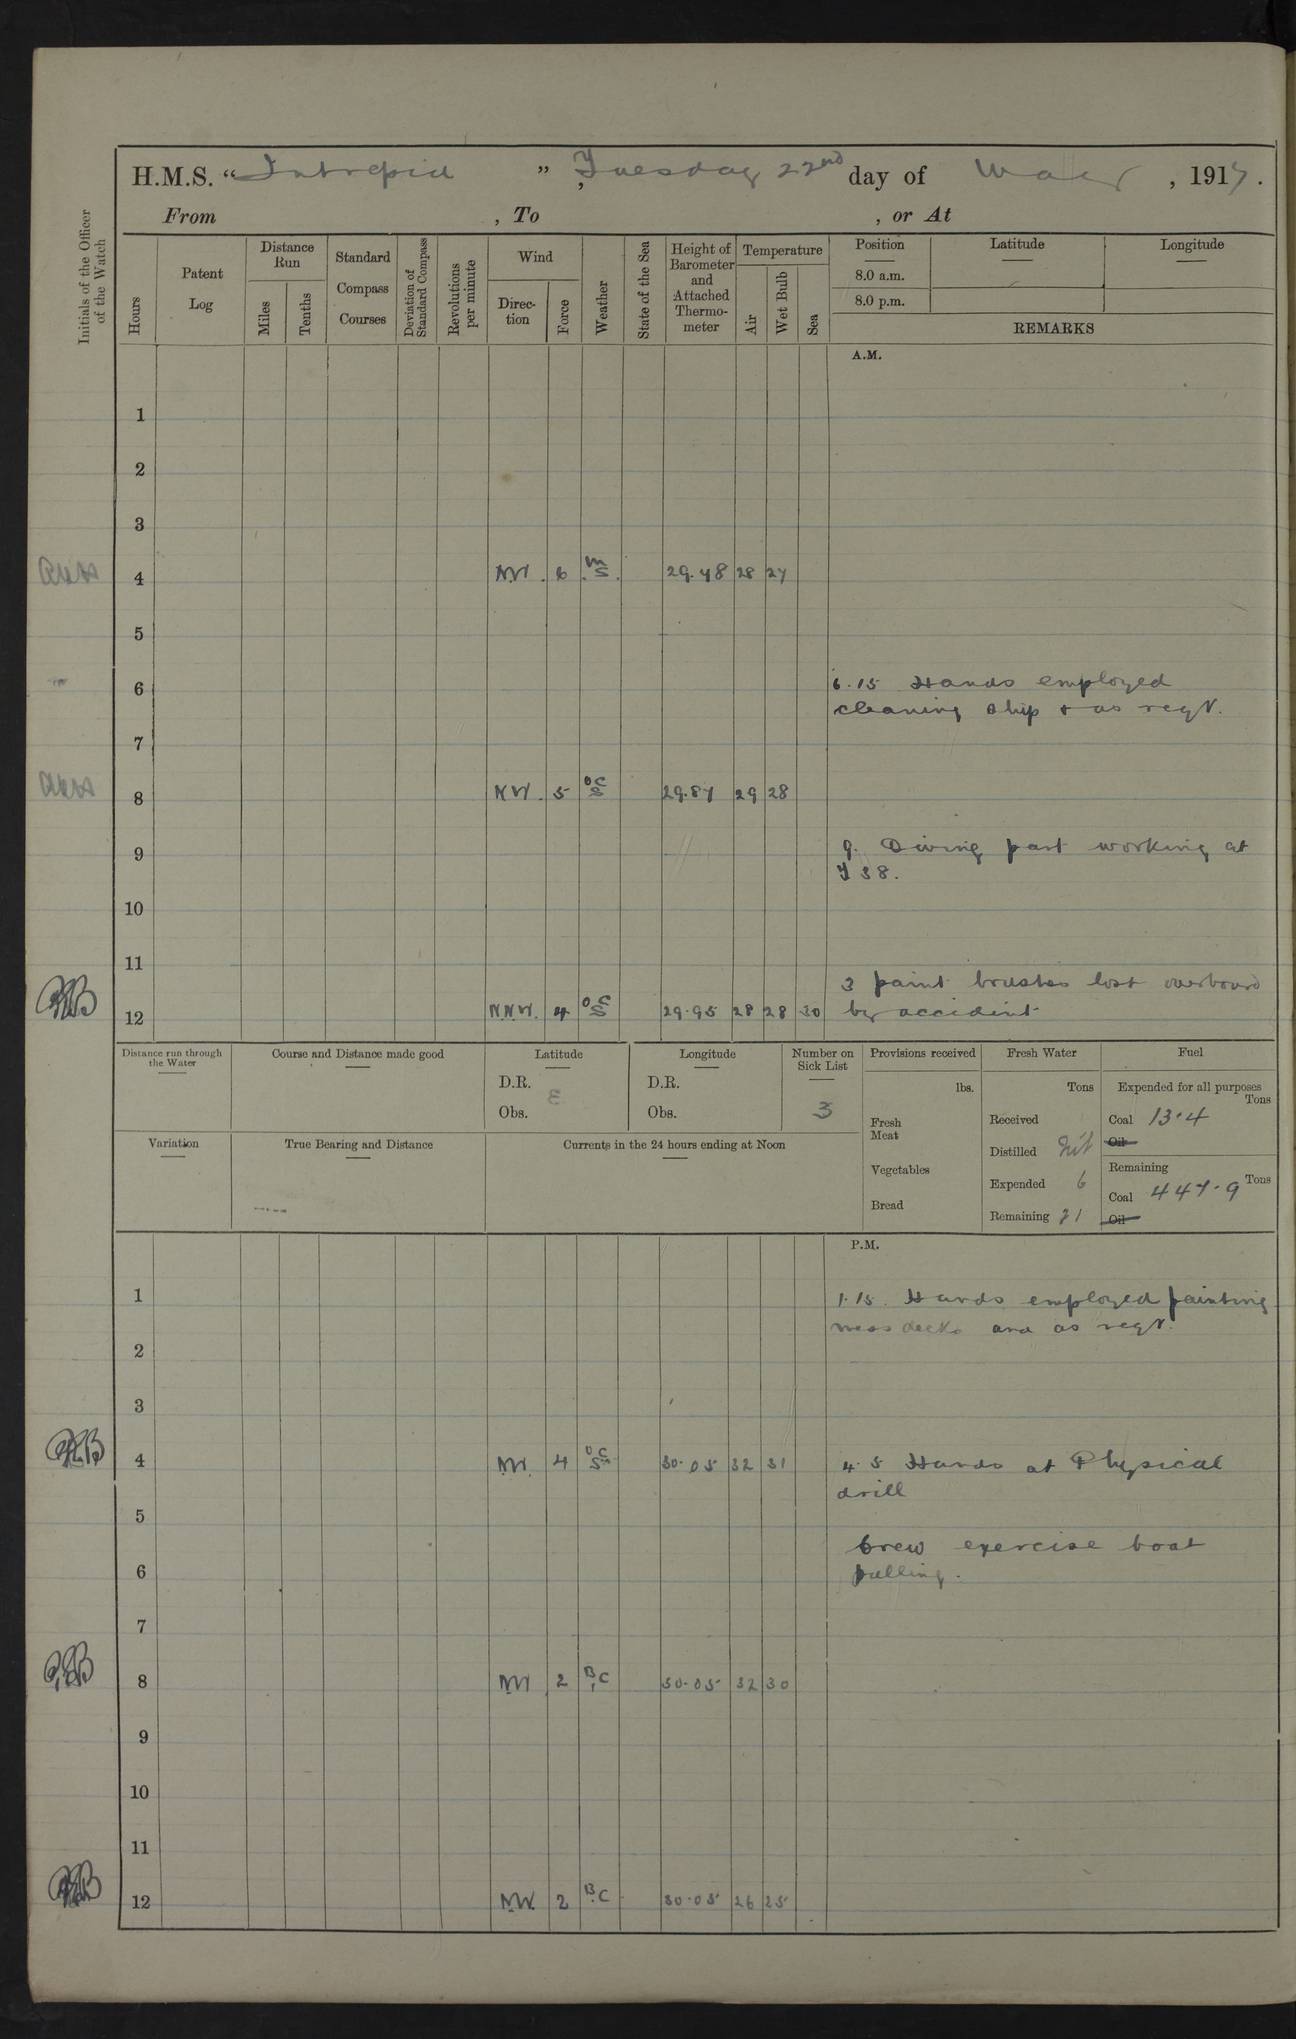 H.M.S. “Intrepid”, Tuesday 22nd day of May, 1917.
From , To , or At
Initials of the Officer of the Watch
Hours
Patent Log
Distance Run
Miles
Tenths
Standard Compass Courses
Deviation of Standard Compass
Revolutions per minute
Wind
Direc-tion
Force
Weather
State of the Sea
Height of Barometer and Attached Thermo-meter
Temperature
Air
Wet Bulb
Sea
Position
Latitude
Longitude
8.0 a.m.
8.0 p.m.
REMARKS
A.M.
1
2
3
4 NW. 6 m s 29.78 28 27
5
6 6.15 Hands employed
cleaning ship & as reqd.
7
8 NW. 5 oc s 29.87 29 28
9 9. Diving part working at
T 38.
10
11
3 paint brushes lost overboard
12 N.N.W. 4 oc s 29.95 28 28 30 by accident
Distance run through the Water
Course and Distance made good
Latitude
D.R.
Obs.
Longitude
D.R.
Obs.
Number on Sick List
3
Provisions received
lbs.
Fresh Meat
Vegetables
Bread
Fresh Water
Tons
Received
Distilled Nil
Expended 6
Remaining 21
Fuel
Expended for all purposes
Tons
Coal 13.4
Oil
Remaining
Tons
Coal 447.9
Oil
Variation
True Bearing and Distance
Currents in the 24 hours ending at Noon
P.M.
1 1.15. Hands employed painting
mess decks and as reqd.
2
3
4 NW. 4 oc s 30.05 32 31 4.5 Hands at Physical
drill
5
Crew exercise boat
6 pulling.
7
8 NW 2 BC 30.05 32 30
9
10
11
12 NW. 2 BC 30.05 26 25